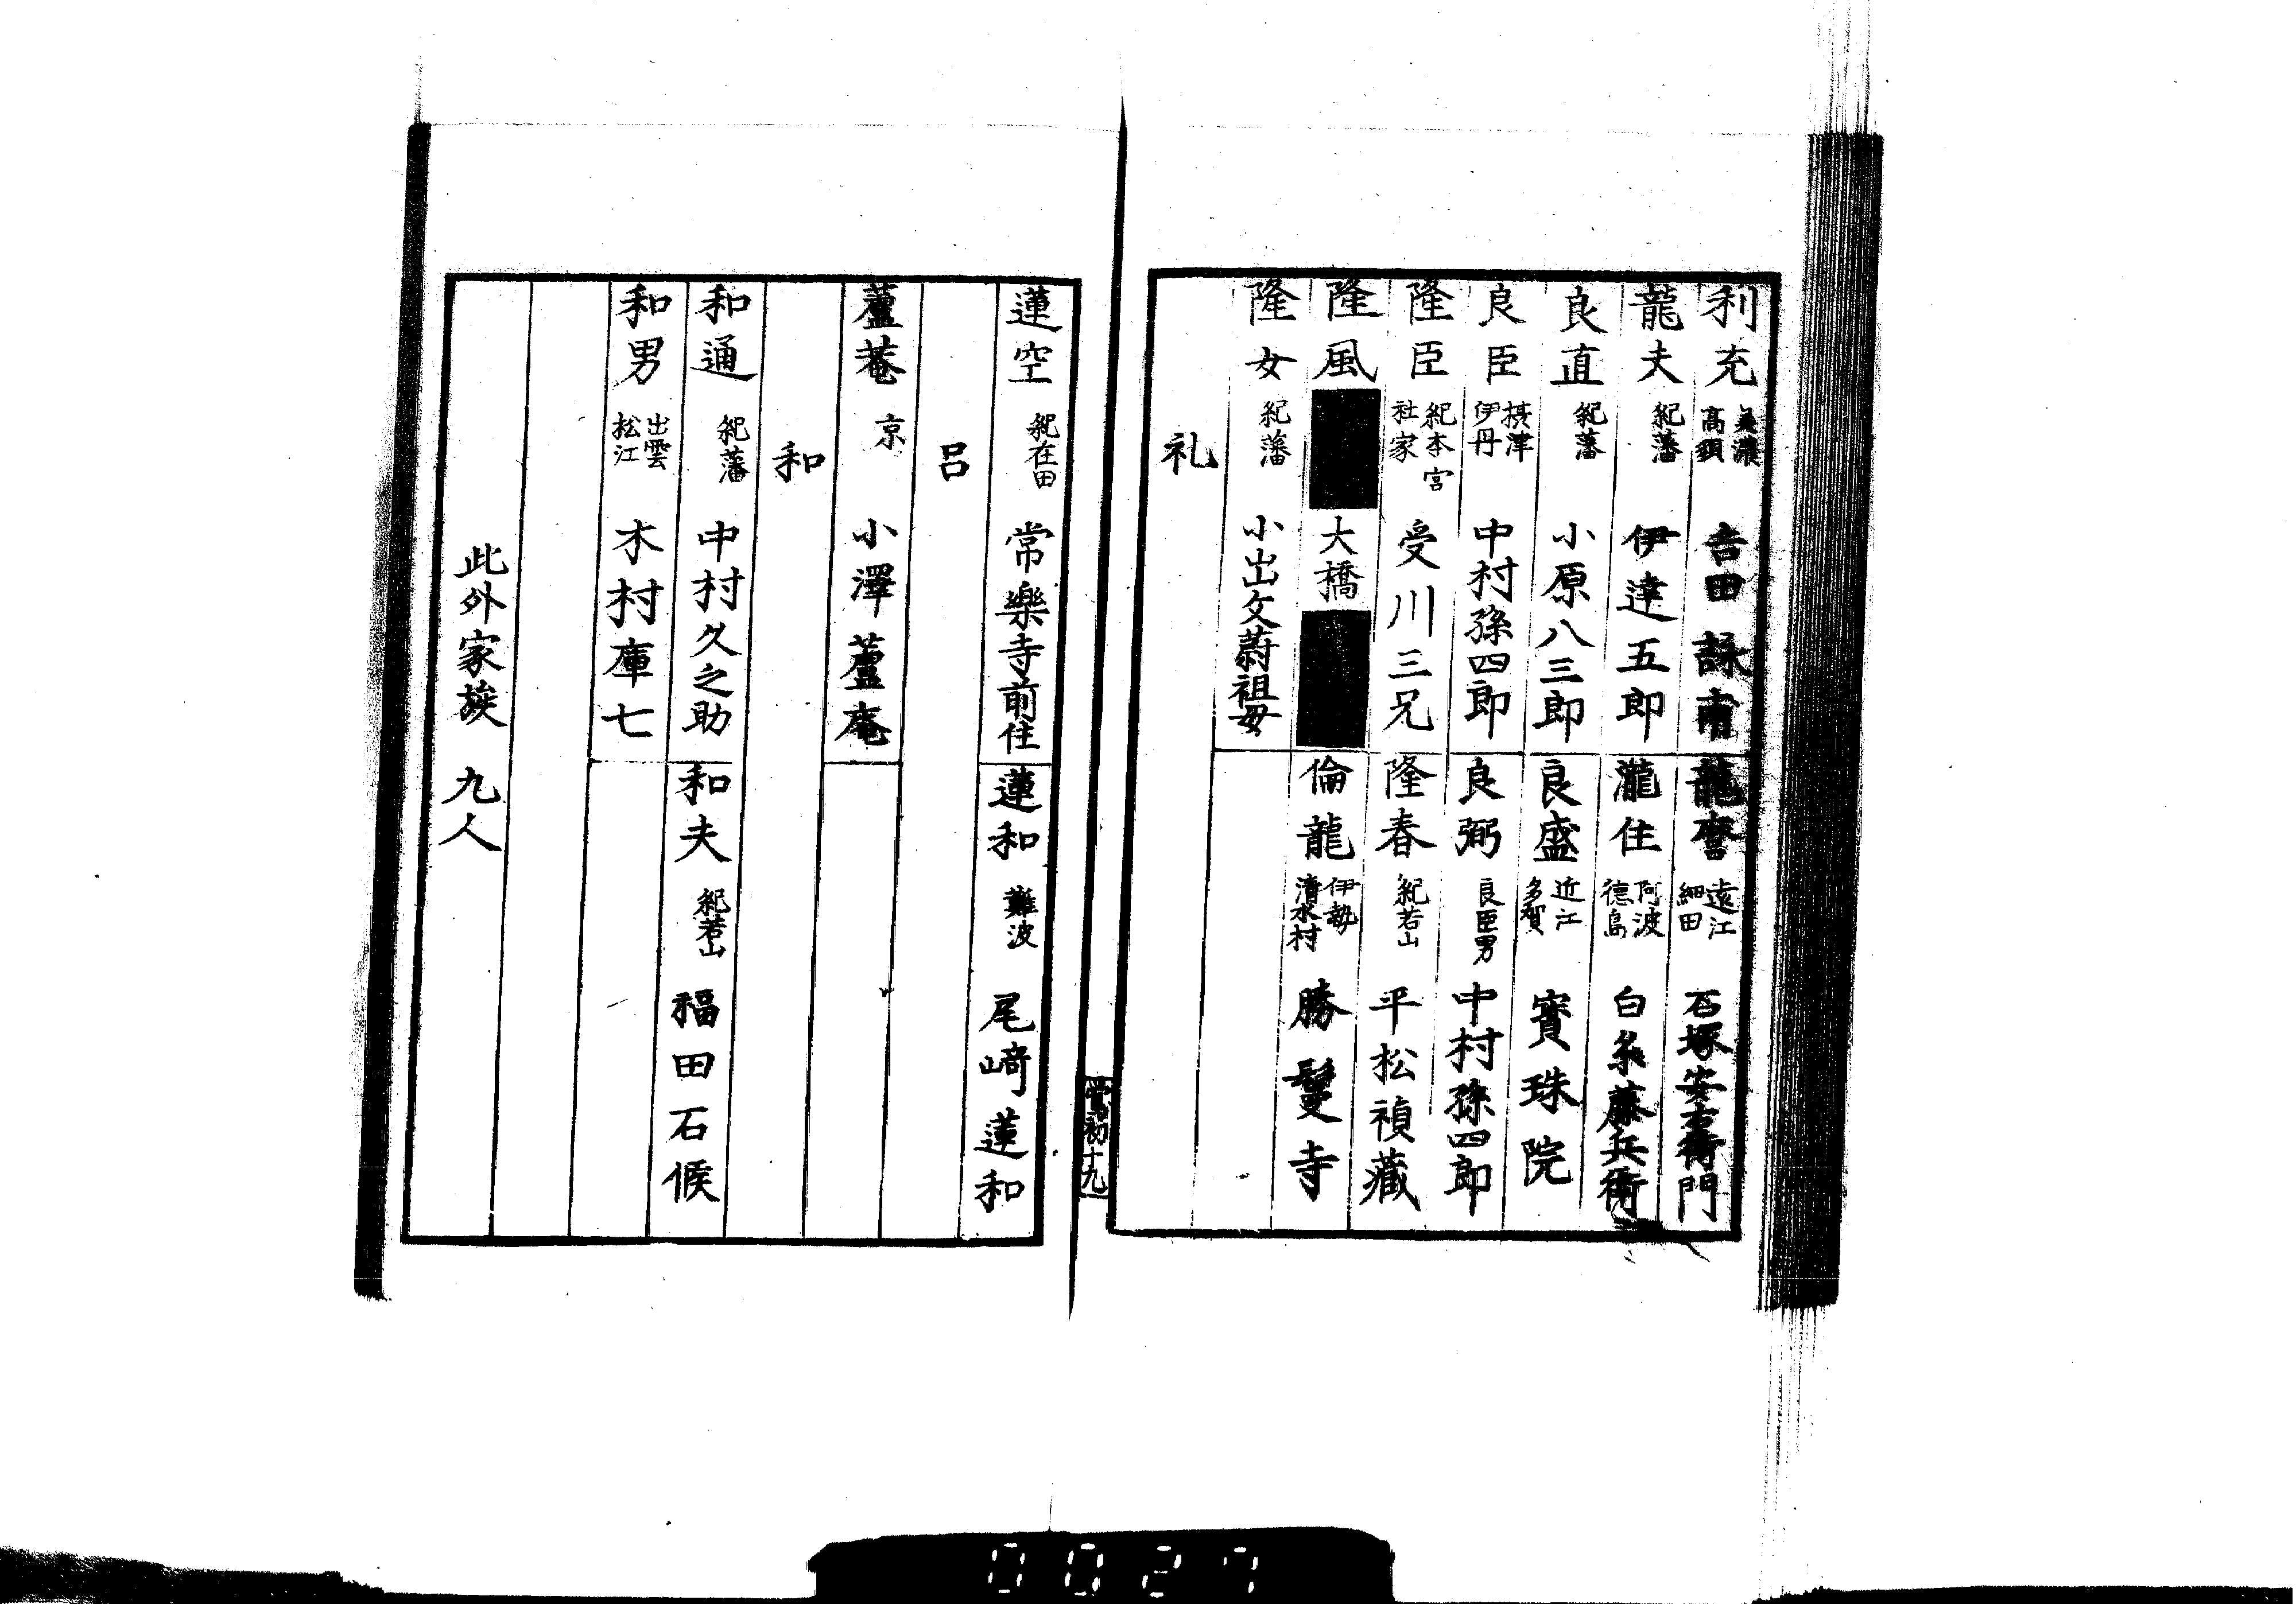 利充 美濃高須 吉田詠甫
龍麿 遠江細田 石塚安右衛門
龍夫 紀藩 伊達五郎
瀧住 阿波徳島 白糸藤兵衛
良直 紀藩 小原八三郎
良盛 近江多賀 寳珠院
良臣 摂津伊丹 中村孫四郎
良弼 良臣男 中村孫四郎
隆臣 紀本宮社家 受川三兄
隆春 紀若山 平松禎蔵
隆風 大橋
倫龍 伊勢清水村 勝鬘寺
隆女 紀藩 小出文蔚祖母
礼
蓮空 紀在田 常樂寺前住
蓮和 難波 尾崎蓮和
呂
蘆菴 京 小澤蘆庵
和
和通 紀藩 中村久之助
和夫 紀若山 福田石候
和男 出雲松江 木村庫七
此外家族 九人
初十九
0027